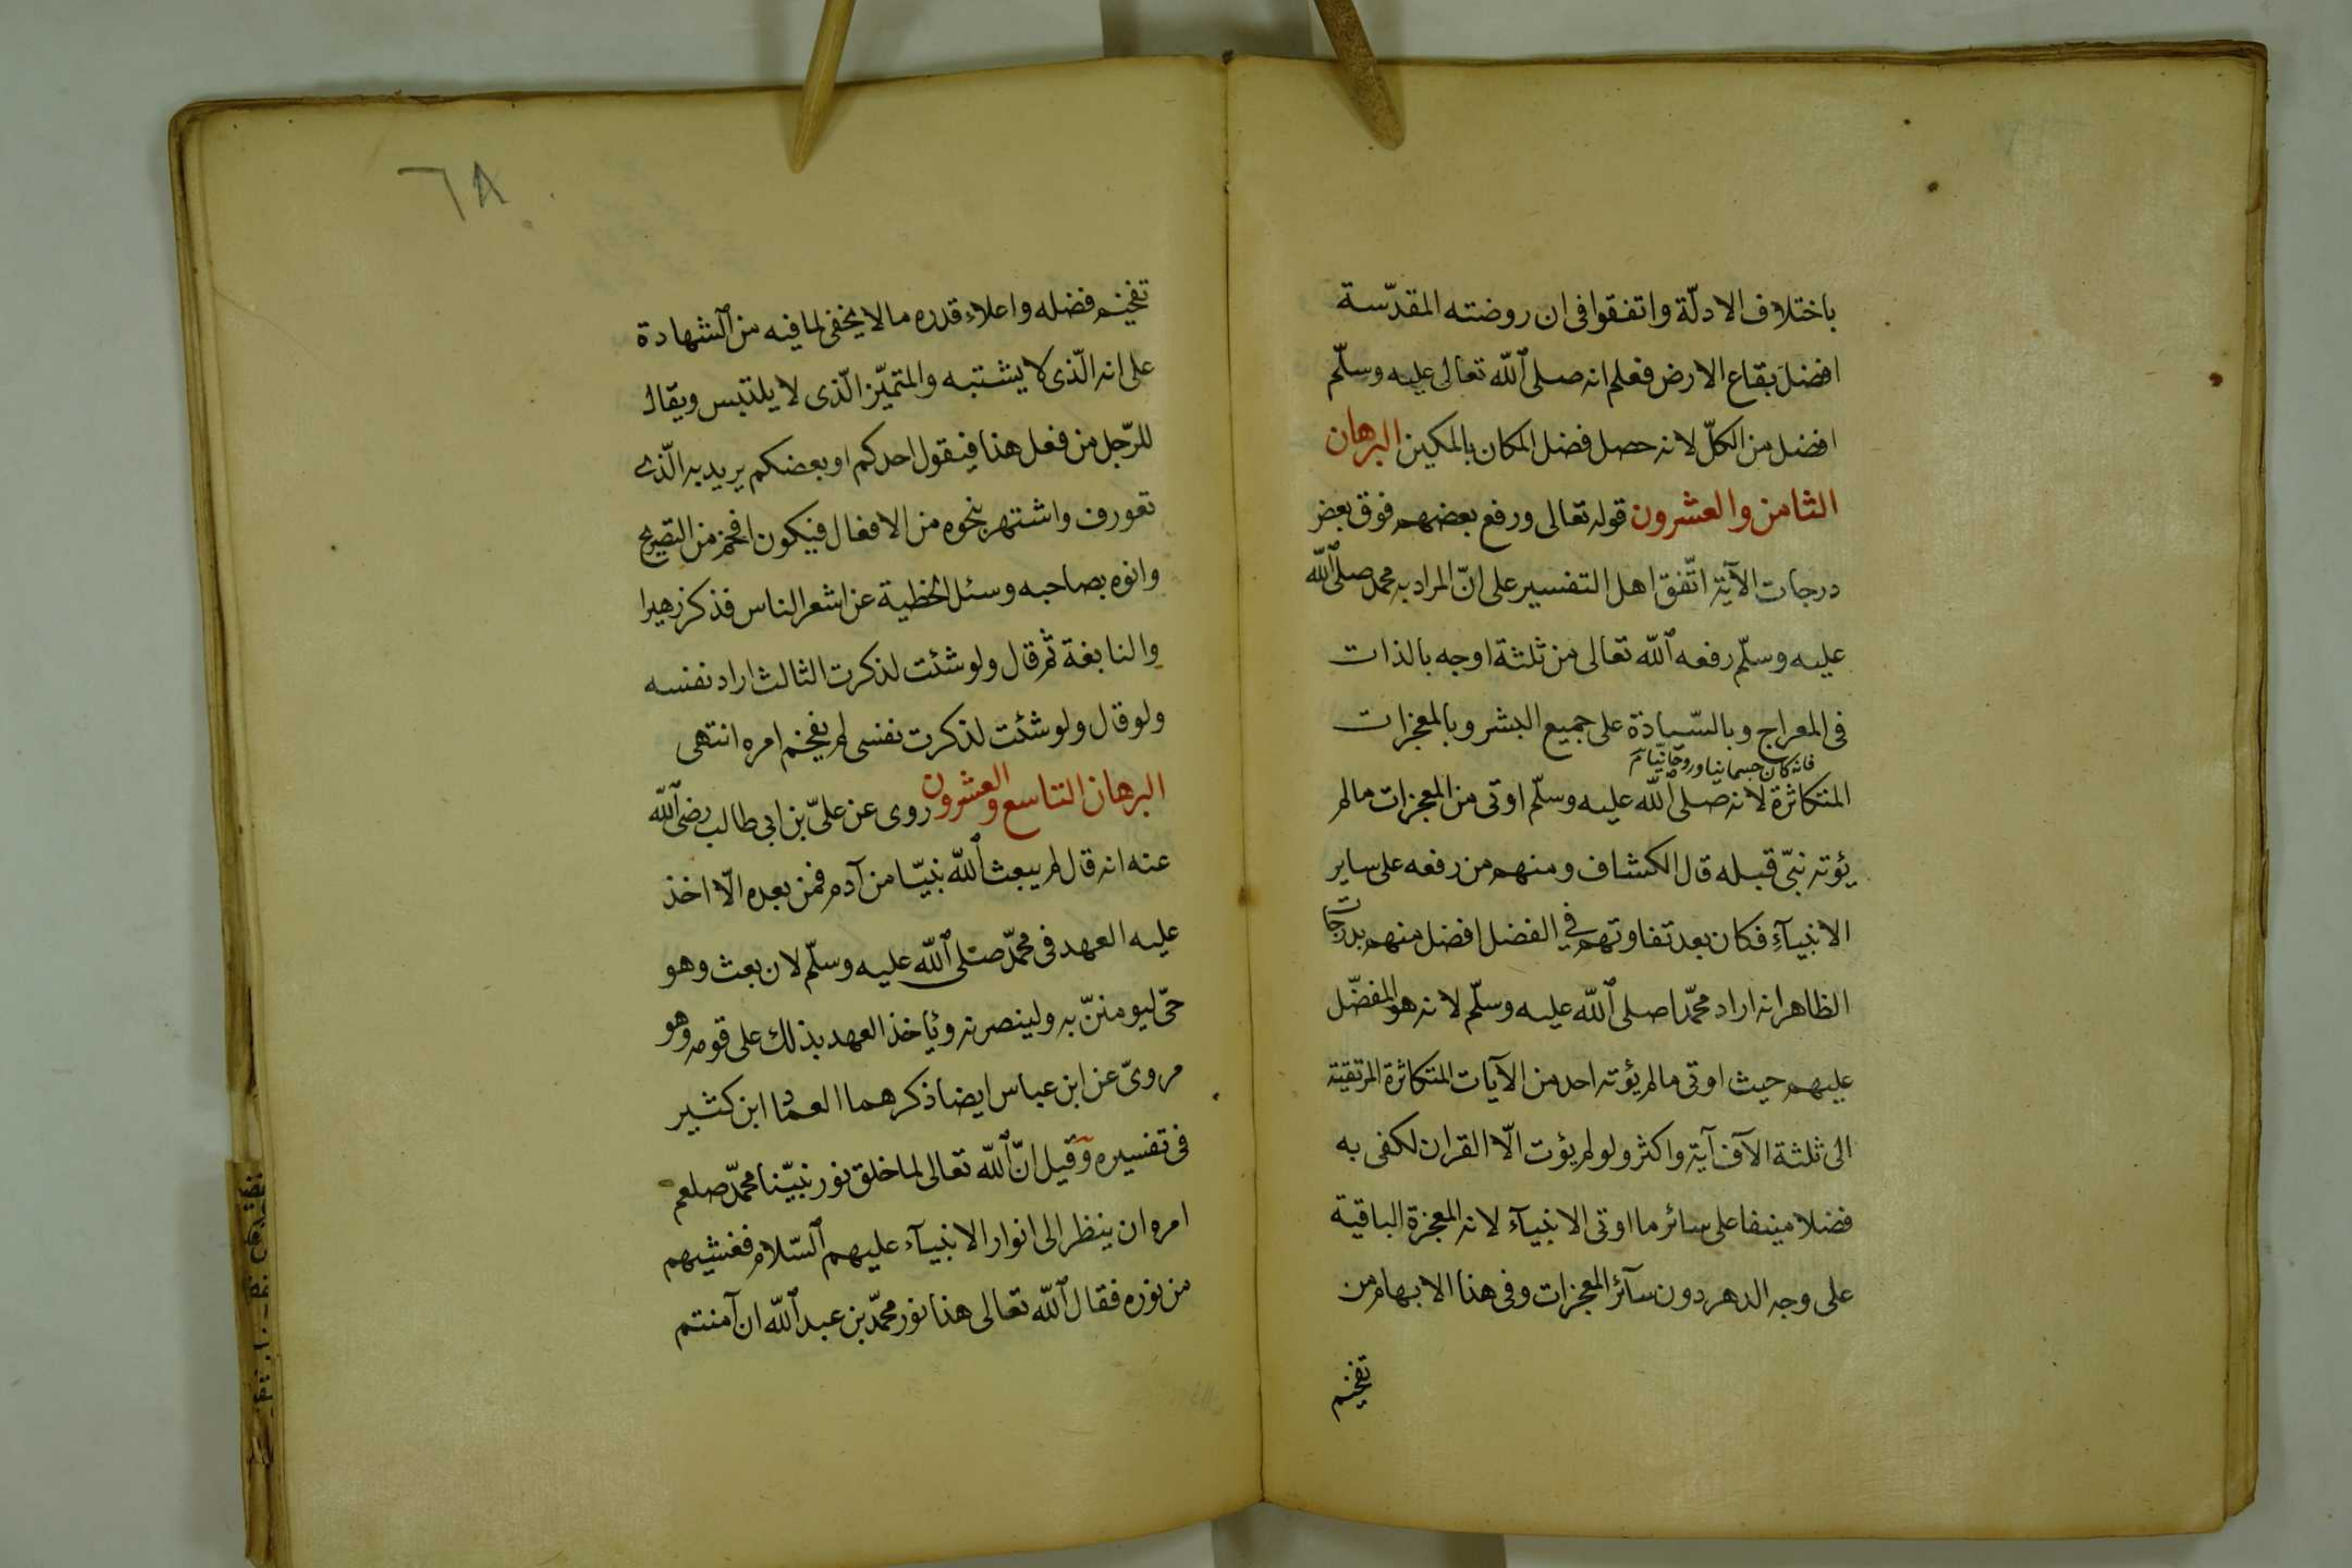 باختلاف الادلّة واتفقوا فى ان روضته المقدّسة
افضل بقاع الارض فعلم انه صلى الله تعالى عليه وسلّم
افضل من الكلّ لانه حصل فضل المكان بالمكين البرهان
الثامن والعشرون قوله تعالى ورفع بعضهم فوق بعض
درجات الآية اتّفق اهل التفسير على انّ المراد به محمد صلى الله
عليه وسلّم رفعه الله تعالى من ثلثة اوجه بالذات
فى المعراج وبالسّيادة على جميع البشر وبالمعجزات
فانه كان جسمانيا وروحانيّا
المتكاثرة لانه صلى الله عليه وسلّم اوتى من المعجزات مالم
يؤته نبىّ قبله قال الكشاف ومنهم من رفعه على ساير
الانبيآء فكان بعد تفاوتهم فى الفضل افضل منهم بدرجات
الظاهر انه اراد محمّدا صلى الله عليه وسلّم لانه هو المفضّل
عليهم حيث اوتى مالم يؤته احد من الآيات المتكاثرة المرتقية
الى ثلثة الآف آية واكثر ولو لم يؤت الّا القران لكفى به
فضلا منيفا على سائر ما اوتى الانبيآء لانه المعجزة الباقية
على وجه الدهر دون سآئر المعجزات وفى هذا الابهام من
تفخيم
٦٨
تفخيم فضله واعلاء قدره مالا يخفى لما فيه من الشهادة
على انه الّذى لا يشتبه والمتميّز الّذى لا يلتبس ويقال
للرّجل من فعل هذا فيقول احدكم او بعضكم يريد به الّذى
تعورف واشتهر بنحوه من الافعال فيكون افخم من التصريح
وانوه بصاحبه وسئل الحطيئة عن اشعر الناس فذكر زهيرا
والنابغة ثم قال ولو شئت لذكرت الثالث اراد نفسه
ولو قال ولو شئت لذكرت نفسى لم يفخم امره انتهى
البرهان التاسع والعشرون روى عن علىّ بن ابى طالب رضى الله
عنه انه قال لم يبعث الله نبيّا من آدم فمن بعده الّا اخذ
عليه العهد فى محمّد صلى الله عليه وسلّم لان بعث وهو
حىّ ليومننّ به ولينصرنه وياخذ العهد بذلك على قومه وهو
مروىّ عن ابن عباس ايضا ذكرهما العماد ابن كثير
فى تفسيره وقيل انّ الله تعالى لما خلق نور نبيّنا محمّد صلعم
امره ان ينظر الى انوار الانبيآء عليهم السّلام فغشيهم
من نوره فقال الله تعالى هذا نور محمّد بن عبد الله ان آمنتم